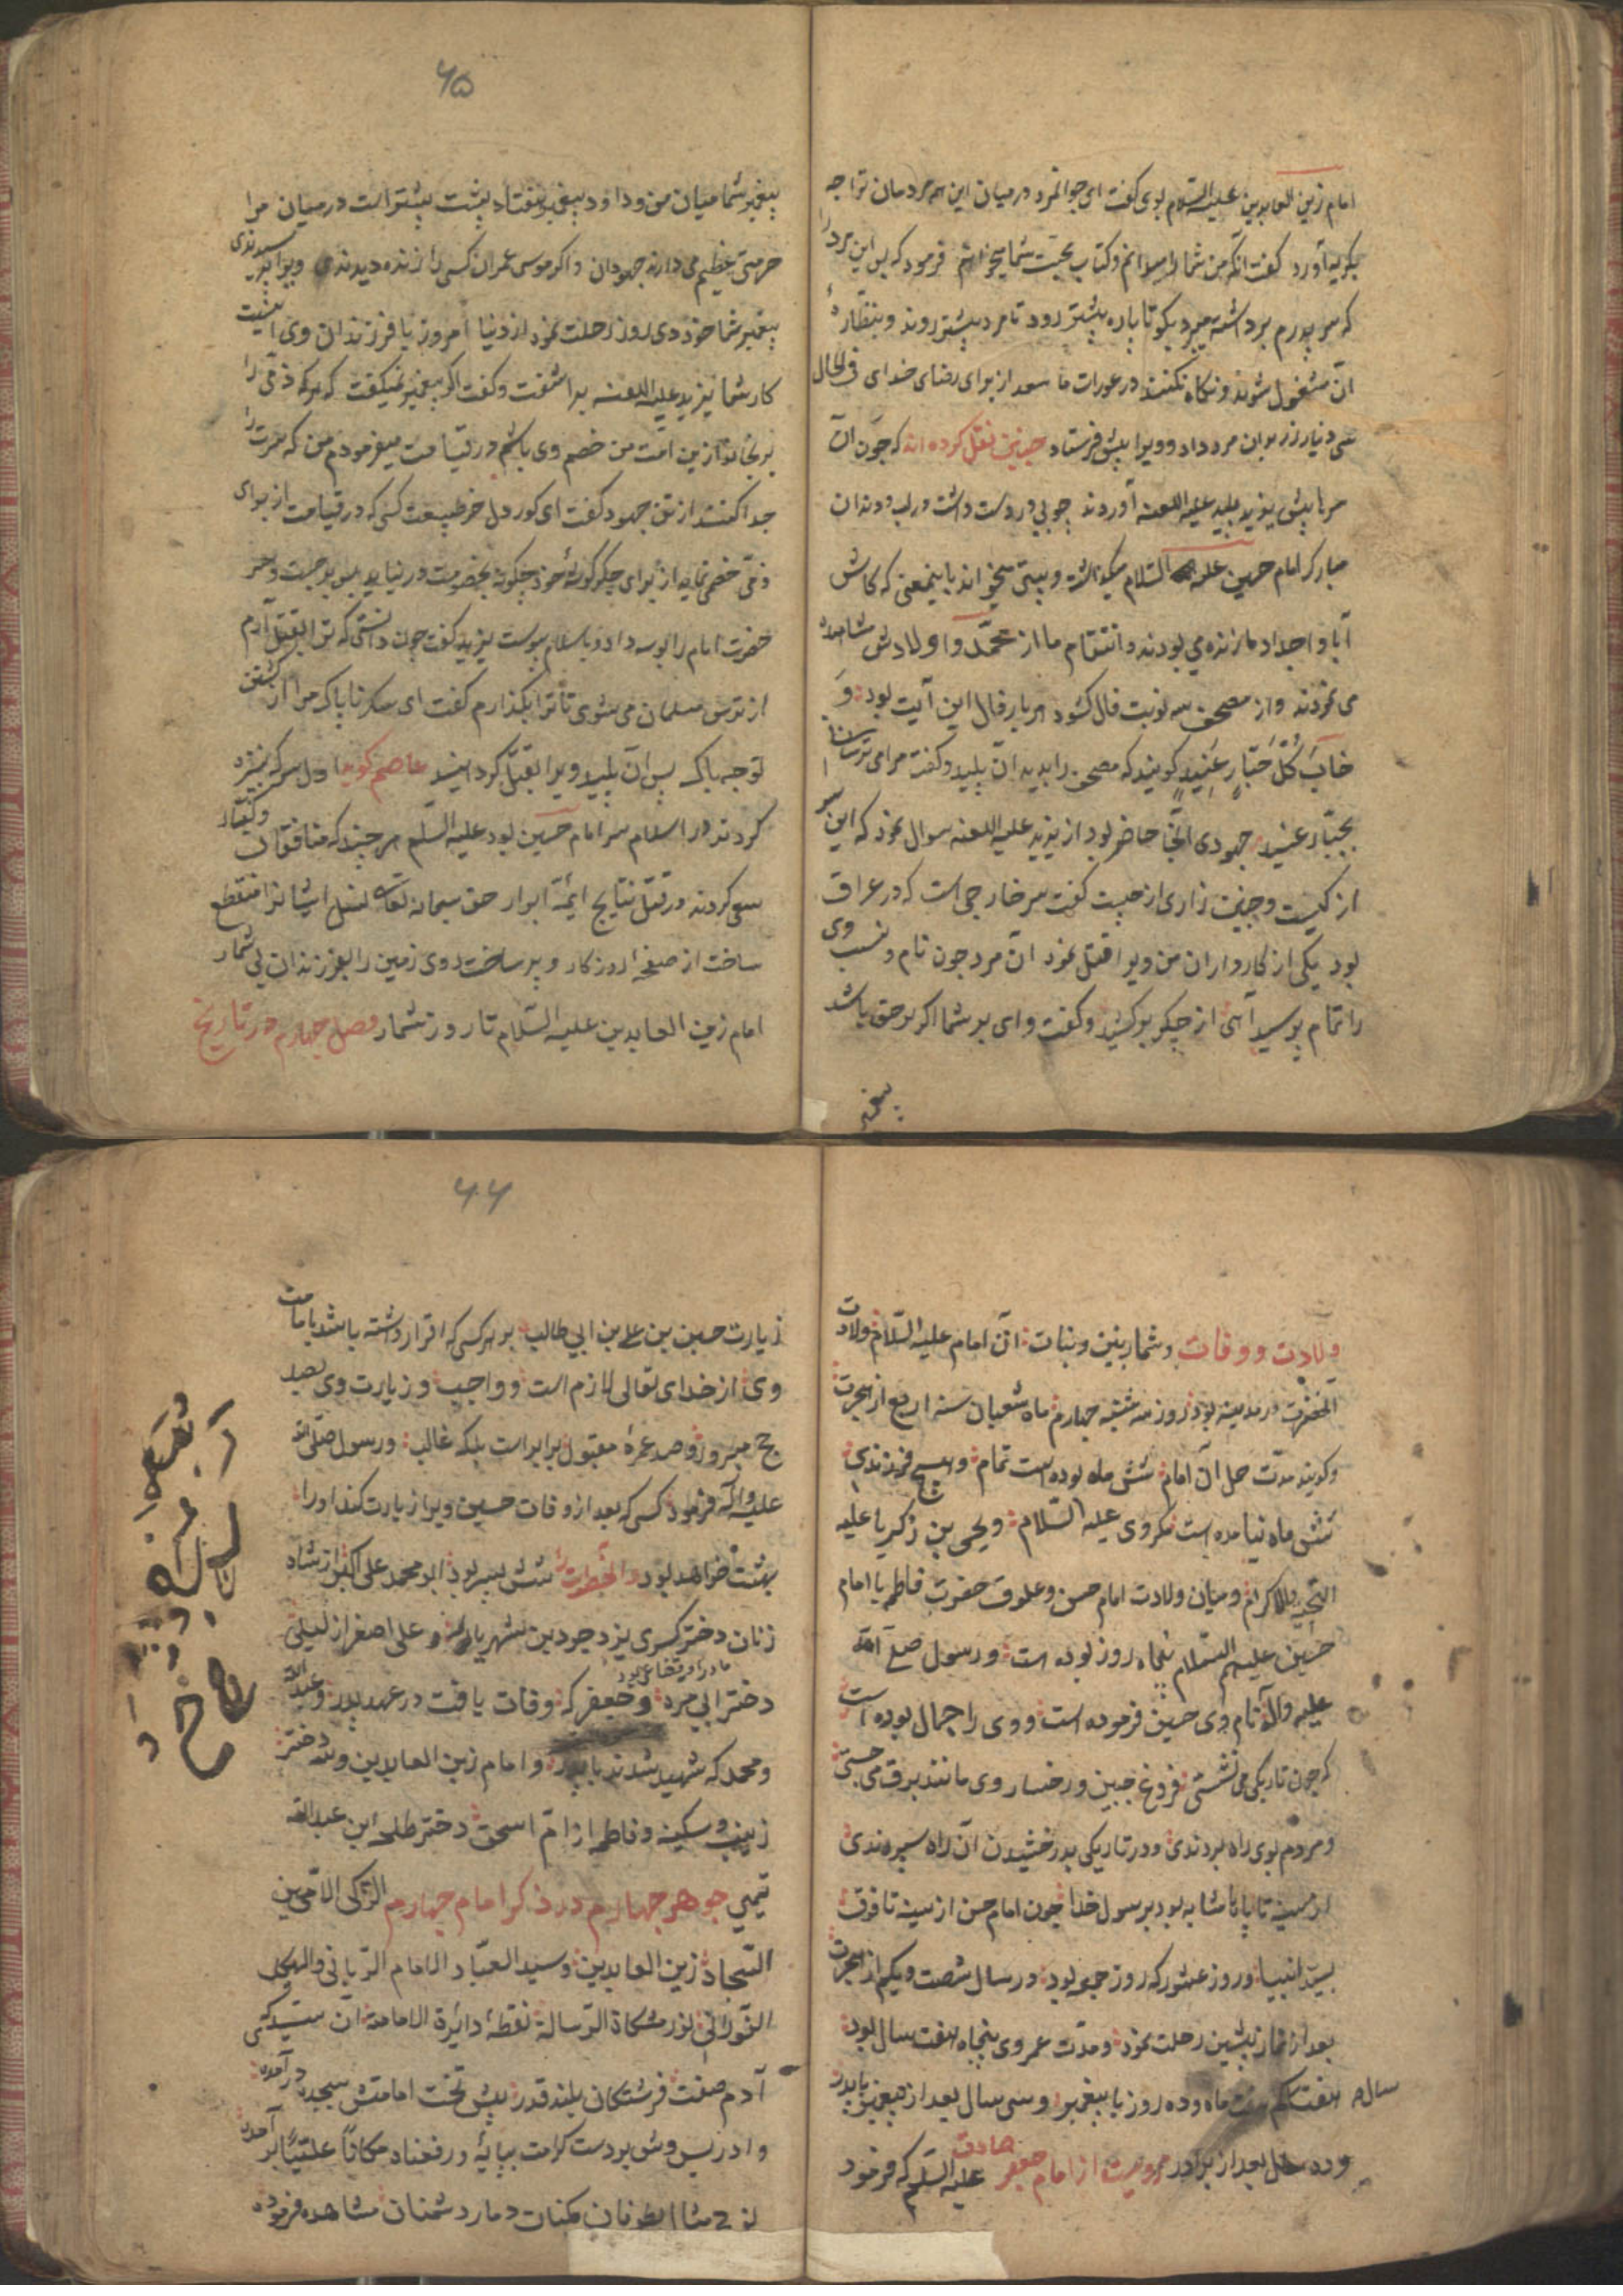 امام زین العابدین علیه السّلام بوی کفت ای جوانمرد در میان این همه مردمان ترا چه
بکریه آورد کفت آنکه من شما را میدانم و کتاب بحجت شما میخوانم فرمود که پس این مرد را
که سر پدرم برداشته میبرد بکو تا پاره پیشتر رود تا مردم پیشتر روند و بنظارهٔ
آن مشغول شوند و نکاه نکنند در عورات ما سعد از برای رضای خدای فی الحال
سی دینار زر بدان مرد داد و ویرا پیش فرستاد چنین نقل کرده اند که چون آن
سر را پیش یزید پلید علیه اللعنه آوردند چوبی در دست داشت و بر لب و دندان
مبارک امام حسین علیه السّلام میکوفت و بیتی میخواند باینمعنی که کاش
آبا و اجداد ما زنده می بودند و انتقام ما از محمّد و اولادش مشاهده
می نمودند و از مصحف سه نوبت فال کشود هر بار فال این آیت بود وَ
خَابَ کُلُّ جَبَّارٍ عَنِیدٍ کویند که مصحف را بدرید آن پلید و کفت مرا می ترسانی
بجبّار عنید جهودی آنجا حاضر بود از یزید علیه اللعنه سوال نمود که این سر
از کیست و چنین زاری از چیست کفت سر خارجی است که در عراق
بود یکی از کارداران من ویرا قتل نمود آن مرد چون نام و نسب وی
را تمام پرسید آهی از جکر برکشید و کفت وای بر شما اکر بر حق باشد
پیغمبر
۶۵
پیغمبر شما میان من و داود پیغمبر هفتاد پشت بیشتر است در میان مرا
حرمتی عظیم می دارند جهودان و اکر موسی عمران کسی را زنده دیدندی ویرا پرسیدندی
پیغمبر شما خود دی روز رحلت نمود از دنیا امروز با فرزندان وی اینست
کار شما یزید علیه اللعنه براشفت و کفت اکر پیغمبر نمیکفت که هر که ذمّی را
برنجاند ازین امّت من خصم وی باشم در قیامت میفرمودم من که سرت را
جدا کنند از تن جهود کفت ای کور دل خر طبیعت کسی که در قیامت از برای
ذمّی خصمی نماید از برای جکرکوشهٔ خود چکونه بخصومت در نیاید پس برجست و سر
حضرت امام را بوسه داد و باسلام پیوست یزید کفت چون دانستی که ترا بقتل آرم
از ترس مسلمان می شوی تا ترا بکذارم کفت ای سک ناپاک مرا از کشتن
تو چه باک پس آن پلید ویرا بقتل کردانید عاصم کوید اول سر که بنیزه
کردند در اسلام سر امام حسین بود علیه السّلم هر چند که منافقان و کفّار
سعی کردند در قتل نتایج ایمّهٔ ابرار حق سبحانه تعالی نسل ایشانرا منقطع
ساخت از صفحهٔ روزکار و پر ساخت روی زمین را بفرزندان بی شمار
امام زین العابدین علیه السّلام تا روز شمار فصل چهارم در تاریخ
ولادت و وفات و شمار بنین و بنات آن امام علیه السّلام ولادت
آنحضرت در مدینه بود روز سه شنبه چهارم ماه شعبان سنه اربع از هجرت
و کویند مدّت حمل آن امام شش ماه بوده است تمام و هیچ فرزندی
شش ماه نیامده است مکر وی علیه السّلام و یحیی بن زکریا علیه
التحیه والاکرام و میان ولادت امام حسن و علوق حضرت فاطمه با امام
حسین علیهم السّلام پنجاه روز بوده است و رسول صلّی الله
علیه و آله نام وی حسین فرموده است و وی را جمال بوده است
که چون تاریکی می نشستی فروغ جبین و رخسار وی مانند برق می جستی
و مردم بوی راه بردندی و در تاریکی بدرخشیدن آن راه سپردندی
از سینه تا پا مشابه بود برسول خدا چون امام حسن از سینه تا فوق
بسیّد انبیا و روز عاشورا که روز جمعه بود در سال شصت و یکم از هجرت
بعد از نماز پیشین رحلت نمود و مدّت عمر وی پنجاه هفت سال بود
هفت سال ماه و ده روز با پیغمبر و سی سال بعد از پیغمبر با پدر
و ده سال بعد از برادر مرویست از امام جعفر صادق علیه السّلم که فرمود
۶۶
زیارت حسین بن علی بن ابی طالب بر هر کسی که اقرار داشته باشد بامامت
وی از خدای تعالی لازم است و واجب و زیارت وی بصد
حج مبرور و صد عمرهٔ مقبول برابر است بلکه غالب و رسول صلّی الله
علیه و آله فرمود کسی که بعد از وفات حسین ویرا زیارت کند او را
بهشت خواهد بود و آنحضرت را شش پسر بود ابو محمد علی اکبر از شاه
زنان دختر کسری یزدجرد بن شهریار و علی اصغر از لیلی
دختر ابی مره و جعفر که مادر او قضاعی بود وفات یافت در عهد پدر و عبد الله
و محمد که شهید شدند با پدر و امام زین العابدین و سه دختر
زینب و سکینه و فاطمه از امّ اسحق دختر طلحه ابن عبد الله
تیمی جوهر چهارم در ذکر امام چهارم الزّکی الامین
السّجاد زین العابدین و سید العبّاد الامام الرّبانی و الهیکل
النّورانی نور مشکاة الرّسالة نقطهٔ دائرة الامامة آن سیّدی که
آدم صفت فرشتکان بلند قدر پیش تخت امامتش بسجده در آمده
و ادریس وش بر دست کرامت بپایهٔ و رفعناه مکاناً علیّاً بر آمده
نوح مثا الطوفان مکنات دمار دشمنان مشاهده فرموده